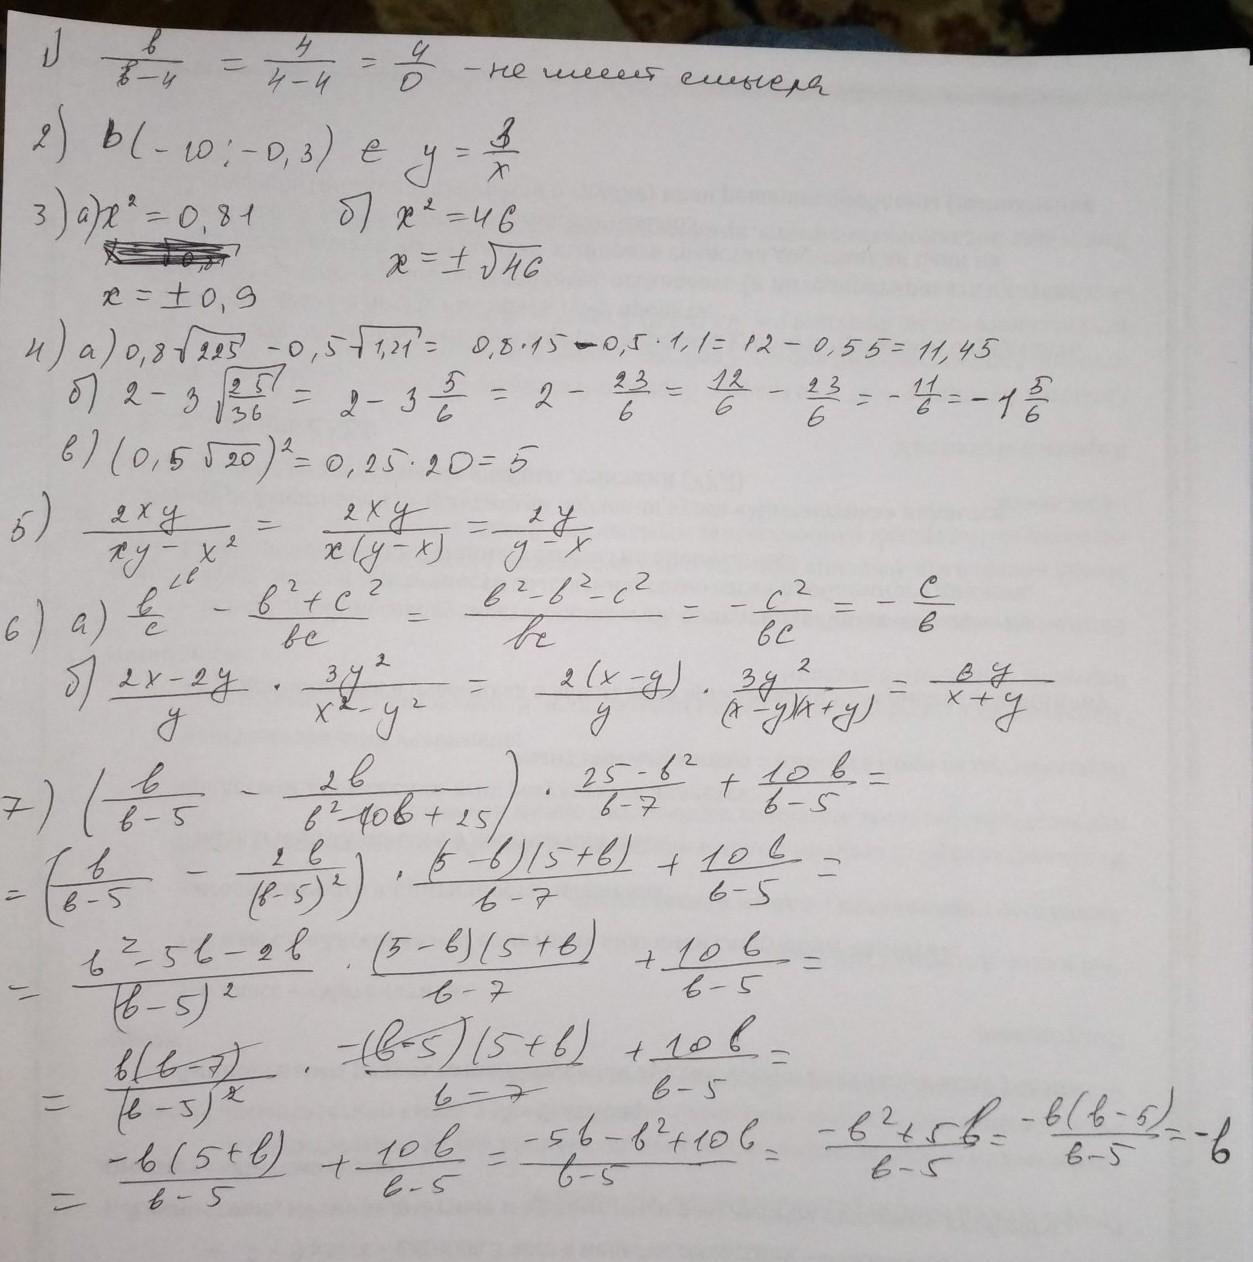 1) в/(в-4) = 4/(4-4) = 4/0 - не имеет смысла
2) b(-10; -0,3) ∈ y = 3/x
3) а) x² = 0,81 б) x² = 46
x = ±√46
x = ±0,9
4) а) 0,8√225 - 0,5√1,21 = 0,8·15 - 0,5·1,1 = 12 - 0,55 = 11,45
б) 2 - 3√(25/36) = 2 - 3 5/6 = 2 - 23/6 = 12/6 - 23/6 = -11/6 = -1 5/6
в) (0,5√20)² = 0,25·20 = 5
5) 2xy/(xy - x²) = 2xy/(x(y-x)) = 2y/(y-x)
6) а) в/с - (в²+с²)/вс = (в²-в²-с²)/вс = -с²/вс = -с/в
б) (2x-2y)/y · 3y²/(x²-y²) = 2(x-y)/y · 3y²/((x-y)(x+y)) = 6y/(x+y)
7) (в/(в-5) - 2в/(в²-10в+25)) · (25-в²)/(в-7) + 10в/(в-5) =
= (в/(в-5) - 2в/(в-5)²) · (5-в)(5+в)/(в-7) + 10в/(в-5) =
= (в²-5в-2в)/(в-5)² · (5-в)(5+в)/(в-7) + 10в/(в-5) =
= в(в-7)/(в-5)² · -(в-5)(5+в)/(в-7) + 10в/(в-5) =
= -в(5+в)/(в-5) + 10в/(в-5) = (-5в-в²+10в)/(в-5) = (-в²+5в)/(в-5) = -в(в-5)/(в-5) = -в